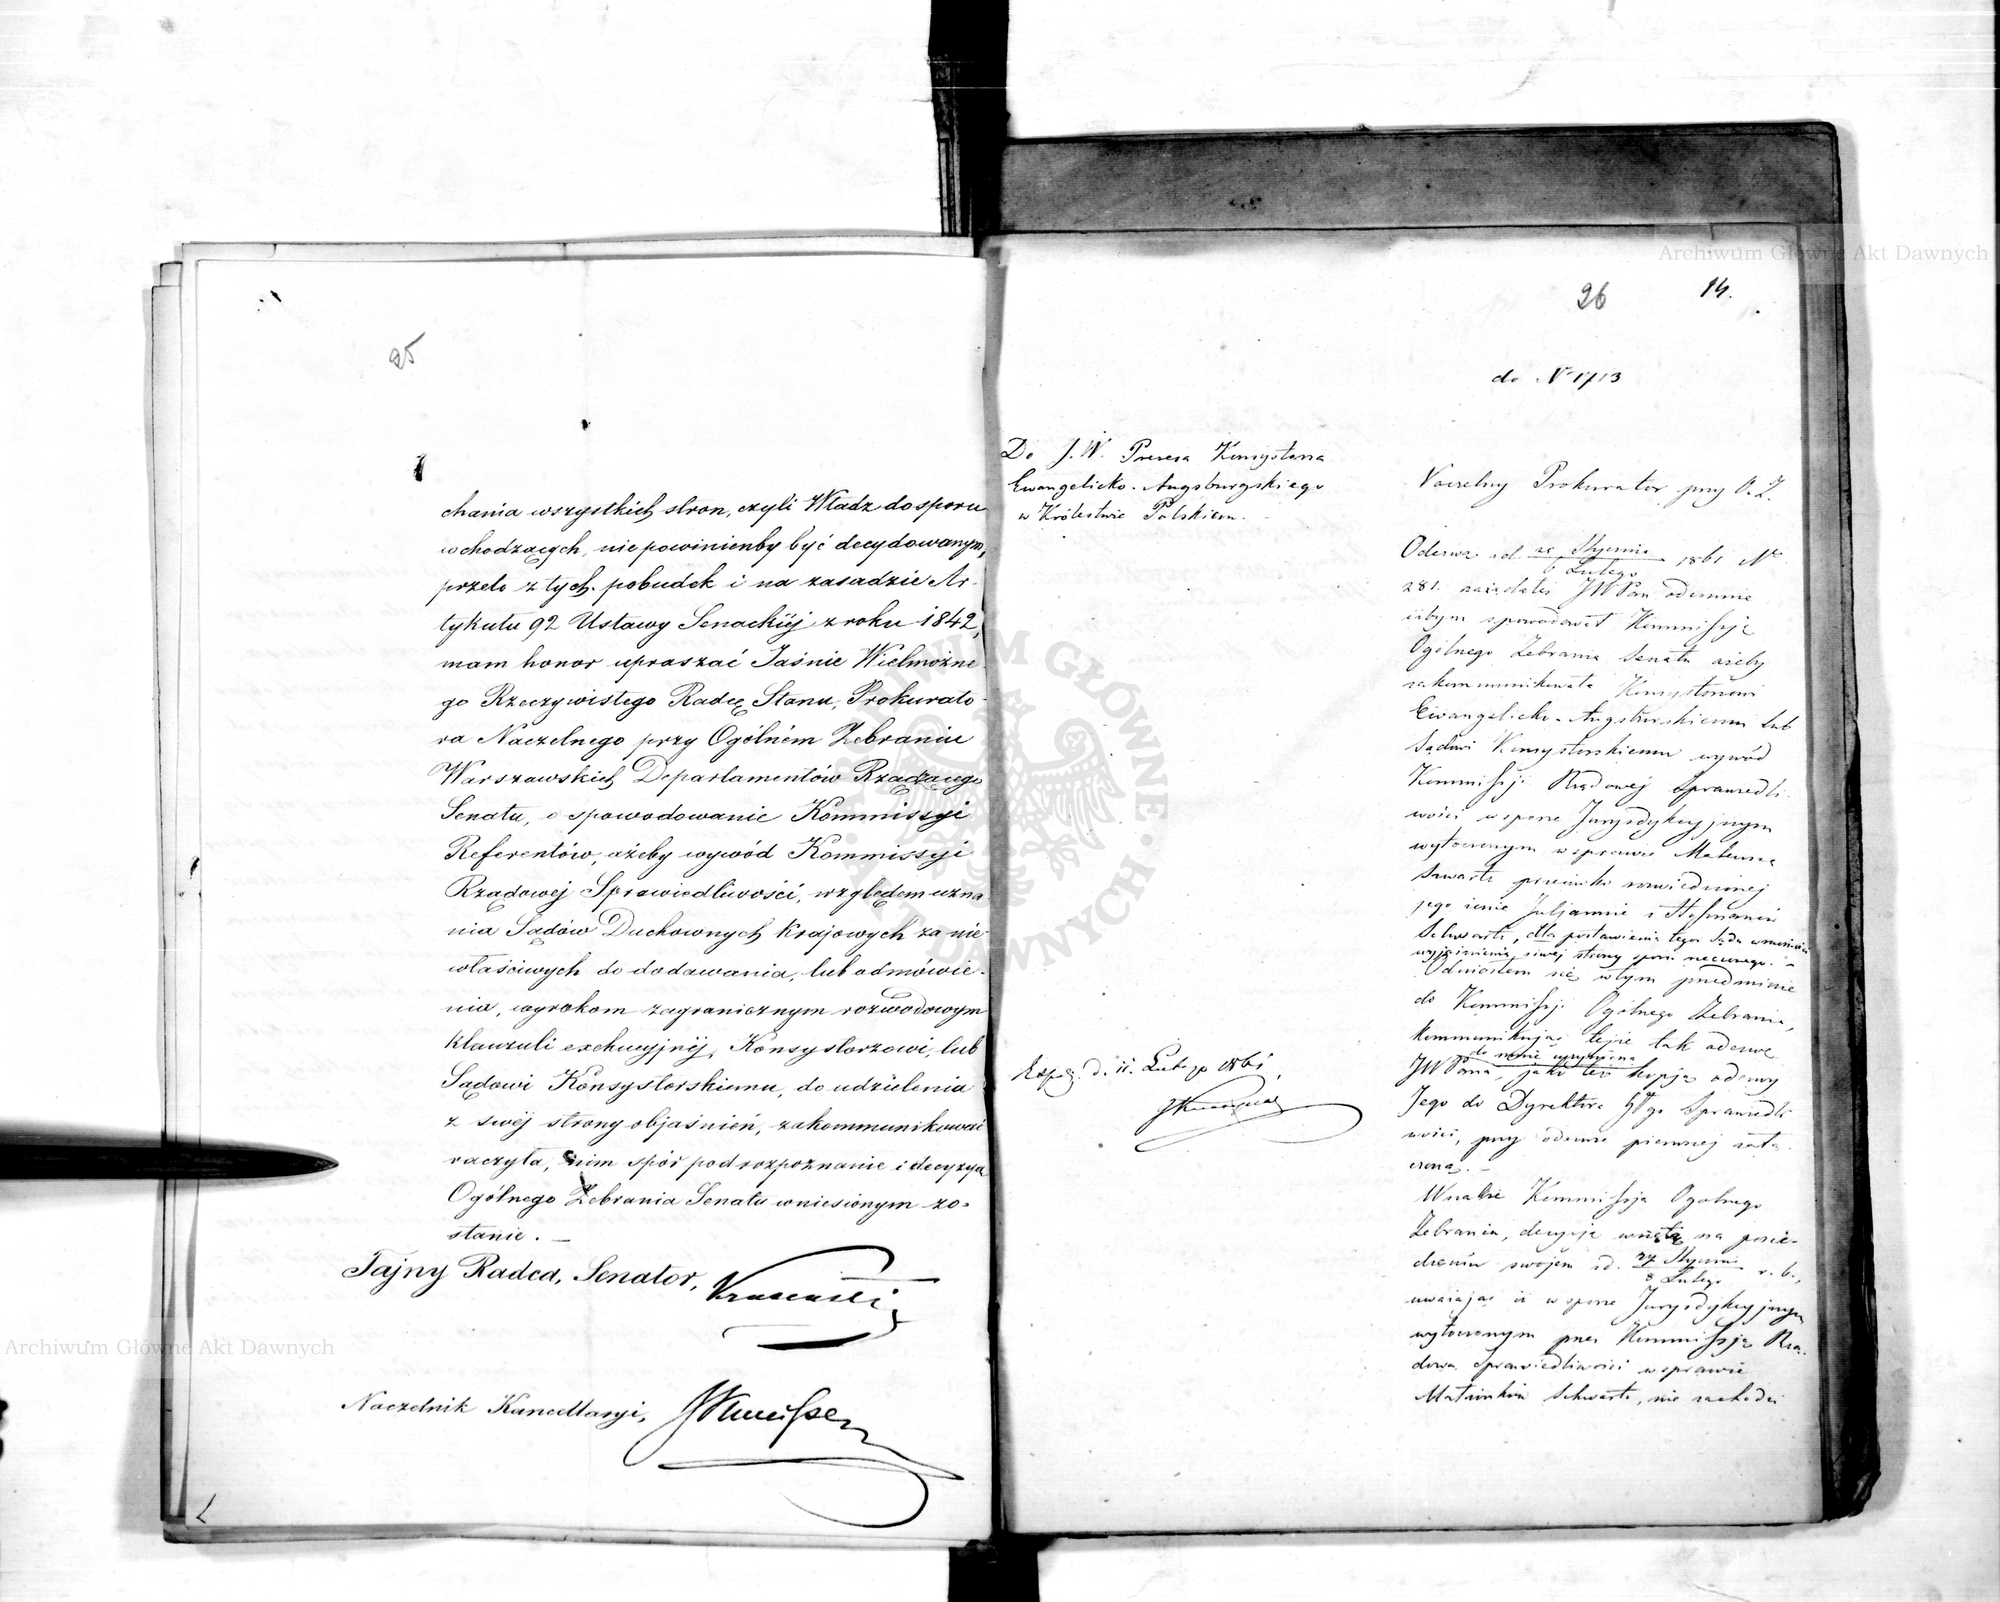 25
chania wszystkich stron, czyli Władz do sporu
wchodzących, niepowinienby być decydowanym,
przeto z tych pobudek i na zasadzie Ar-
tykułu 92 Ustawy Senackiéj z roku 1842,
mam honor upraszać Jaśnie Wielmożne-
go Rzeczywistego Radcę Stanu, Prokurato-
ra Naczelnego przy Ogólném Zebraniu
Warszawskich Departamentów Rządzącego
Senatu, o spowodowanie Kommissyi
Referentów, ażeby wywód Kommissyi
Rządowej Sprawiedliwości, względem uzna-
nia Sądów Duchownych krajowych za nie-
właściwych do dodawania, lub odmówie-
nia, wyrokom zagranicznym rozwodowym
klauzuli exekucyjnéj, Konsystorzowi, lub
Sądowi Konsystorskiemu, do udzielenia
z swéj strony objaśnień, zakommunikować
raczyła, nim spór pod rozpoznanie i decyzyą
Ogólnego Zebrania Senatu wniesionym zo-
stanie. —
Tajny Radca, Senator,
Naczelnik Kancellaryi,
26 14.
do N 1713
Do J. W. Prezesa Konsystorza
Ewangelicko-Augsburgskiego
w Królestwie Polskiem.
Naczelny Prokurator przy O. Z.
Odezwą z d. 25 Stycznia / 6 Lutego 1861 N
281. zażądałeś JWPan odemnie
iżbym spowodował Kommissją
Ogólnego Zebrania Senatu ażeby
zakommunikowała Konsystorzowi
Ewangelicko-Augsburskiemu lub
Sądowi Konsystorskiemu wywód
Kommissji Rządowej Sprawiedli-
wości w sporze Jurysdykcyjnym
wytoczonym w sprawie Mateusza
Szwartz przeciwko rozwiedzionej
jego żonie Juljannie z Hofmanów
Schwartz, dla postawienia tego Sądu w możności
wyjaśnienia z swej strony sporu rzeczonego. —
Odniosłem się w tym przedmiocie
do Kommissji Ogólnego Zebrania,
kommunikując tejże tak odezwę
do mnie uczynioną
JWPana, jako też kopją odezwy
Jego do Dyrektora Głgo Sprawiedli-
wości, przy odezwie pierwszej załą-
czoną. —
Expeg. d. 11. Lutego 1861,
Wszakże Kommissja Ogólnego
Zebrania, decyzją wziętą na posie-
dzeniu swojem z d. 27 Stycznia / 8 Lutego r. b.,
uważając iż w sporze Jurysdykcyjnym
wytoczonym przez Kommissją Rzą-
dową Sprawiedliwości w sprawie
Małżonków Schwartz, nie zachodzi
Archiwum Główne Akt Dawnych
Archiwum Główne Akt Dawnych
ARCHIWUM GŁÓWNE AKT DAWNYCH